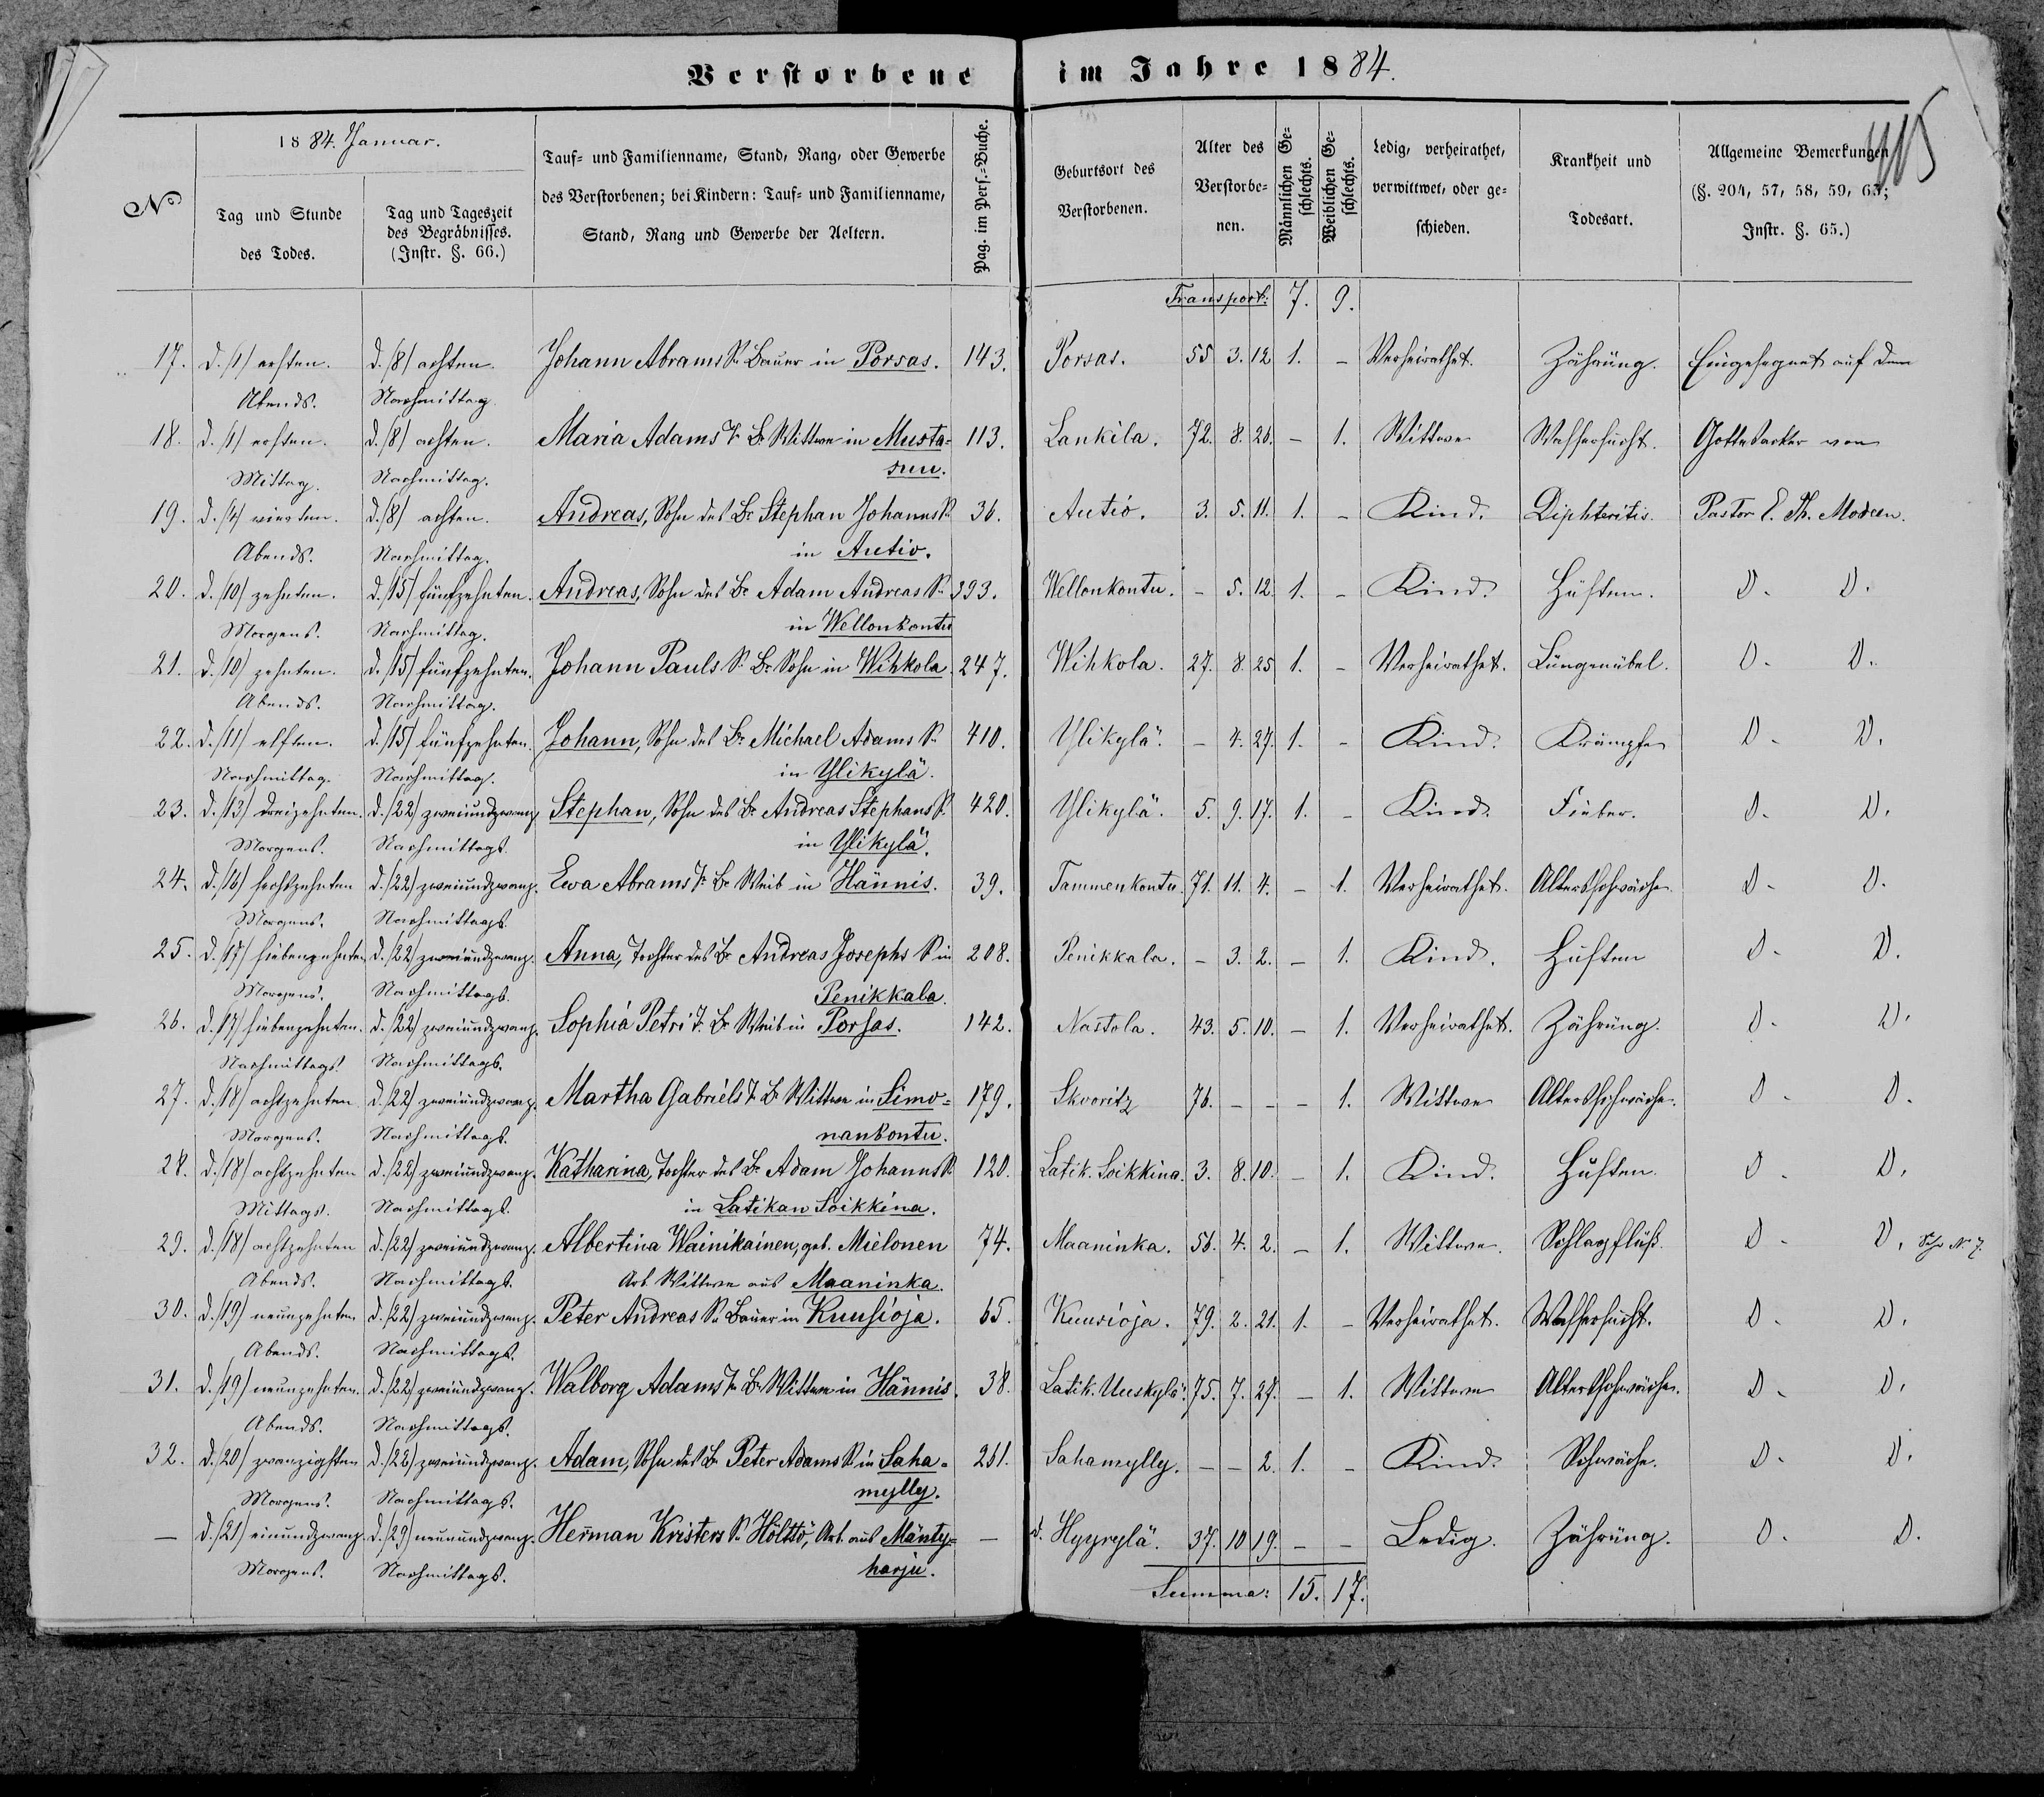 Verstorbene im Jahre 1884.
115
No
1884. Januar.
Tag und Stunde des Todes.
Tag und Tageszeit des Begräbnisses. (Instr. §. 66.)
Tauf- und Familienname, Stand, Rang, oder Gewerbe des Verstorbenen; bei Kindern: Tauf- und Familienname, Stand, Rang und Gewerbe der Aeltern.
Pag. im Pers.-Buche.
Geburtsort des Verstorbenen.
Alter des Verstorbenen.
Männlichen Geschlechts.
Weiblichen Geschlechts.
Ledig, verheirathet, verwittwet, oder geschieden.
Krankheit und Todesart.
Allgemeine Bemerkungen (§. 204, 57, 58, 59, 63; Instr. §. 65.)
Transport: 7. 9.
17. d. /1/ ersten. d. /8/ achten. Johann Abrams S. Bauer in Porsas. 143. Porsas. 55 3. 12 1. – Verheirathet. Zährung. Eingesegnet auf dem
Abends. Nachmittag.
18. d. /1/ ersten. d. /8/ achten. Maria Adams T. Br Wittwe in Musta- 113. Lankila. 72. 8. 26. – 1. Wittwe Wassersucht. Gottesacker von
Mittag. Nachmittag. suu.
19. d. /4/ vierten. d. /8/ achten. Andreas, Sohn des Br Stephan Johanns S. 36. Autio. 3. 5. 11. 1. – Kind. Diphteritis. Pastor E. Th. Modeen.
Abends. Nachmittag. in Autio.
20. d. /10/ zehnten. d. /15/ fünfzehnten. Andreas, Sohn des Br Adam Andreas S. 393. Wellonkontu. – 5. 12. 1. – Kind. Husten. D. D.
Morgens. Nachmittag. in Wellonkontu
21. d. /10/ zehnten. d. /15/ fünfzehnten. Johann Pauls S. Br Sohn in Wihkola. 247. Wihkola. 27. 8. 25 1. – Verheirathet. Lungenübel. D. D.
Abends. Nachmittag.
22. d. /11/ elften. d. /15/ fünfzehnten. Johann, Sohn des Br Michael Adams S. 410. Ylikylä. – 4. 27. 1. – Kind. Krämpfe D. D.
Nachmittag. Nachmittag. in Ylikylä.
23. d. /13/ dreizehnten. d. /22/ zweiundzwanz. Stephan, Sohn des Br Andreas Stephans S. 420. Ylikylä. 5. 9. 17. 1. – Kind. Fieber. D. D.
Morgens. Nachmittags. in Ylikylä.
24. d. /16/ sechszehnten d. /22/ zweiundzwanz. Ewa Abrams T. Br Weib in Hännis. 39. Tammenkontu. 71. 11. 4. – 1. Verheirathet. Altersschwäche D. D.
Morgens. Nachmittags.
25. d. /17/ siebenzehnten d. /22/ zweiundzwanz. Anna, Tochter des Br Andreas Josephs S. in 208. Penikkala. – 3. 2. – 1. Kind. Husten D. D.
Morgens. Nachmittags. Penikkala.
26. d. /17/ siebenzehnten. d. /22/ zweiundzwanz. Sophia Petri T. Br Weib in Porsas. 142. Nastola. 43. 5. 10. – 1. Verheirathet. Zährung. D. D.
Nachmittags. Nachmittags.
27. d. /18/ achtzehnten d. /22/ zweiundzwanz. Martha Gabriels T. Br Wittwe in Simo- 179. Skvoritz 76. – – – 1. Wittwe Altersschwäche. D. D.
Morgens. Nachmittags. nankontu.
28. d. /18/ achtzehnten d. /22/ zweiundzwanz. Katharina, Tochter des Br Adam Johanns S. 120. Latik. Soikkina. 3. 8. 10. – 1. Kind. Husten. D. D.
Mittags. Nachmittags. in Latikan Soikkina.
29. d. /18/ achtzehnten d. /22/ zweiundzwanz. Albertina Wainikainen, geb. Mielonen 74. Maaninka. 56. 4. 2. – 1. Wittwe. Schlagfluß. D. D. No 7.
Abends. Nachmittags. Arb. Wittwe aus Maaninka.
30. d. /19/ neunzehnten d. /22/ zweiundzwanz. Peter Andreas S. Bauer in Kuusioja. 65. Kuusioja. 79. 2. 21. 1. – Verheirathet. Wassersucht. D. D.
Abends. Nachmittags.
31. d. /19/ neunzehnten. d. /22/ zweiundzwanz. Walborg Adams T. Br Wittwe in Hännis. 38. Latik. Uuskylä. 75. 7. 27. – 1. Wittwe Altersschwäche. D. D.
Abends. Nachmittags.
32. d. /20/ zwanzigsten d. /22/ zweiundzwanz. Adam, Sohn des Br Peter Adams S. in Saha- 261. Sahamylly. – – 2. 1. – Kind. Schwäche. D. D.
Morgens. Nachmittags. mylly.
– d. /21/ einundzwanz. d. /29/ neunundzwanz. Herman Kristers S. Hölttö, Arb. aus Mänty- – Hyyrylä. 37. 10 19. – – Ledig. Zährung. D. D.
Morgens. Nachmittags. harju.
Summa: 15. 17.